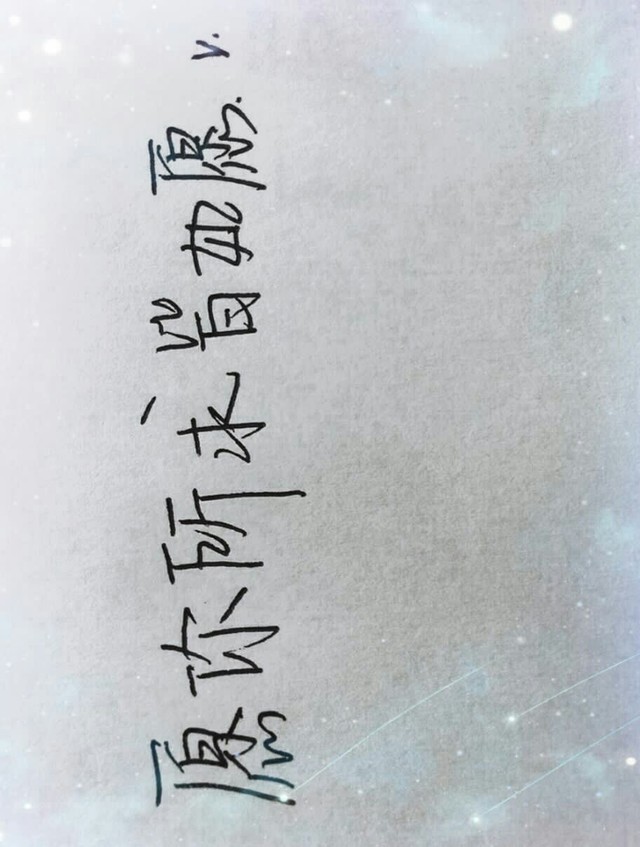 愿你所求皆如愿.
v.